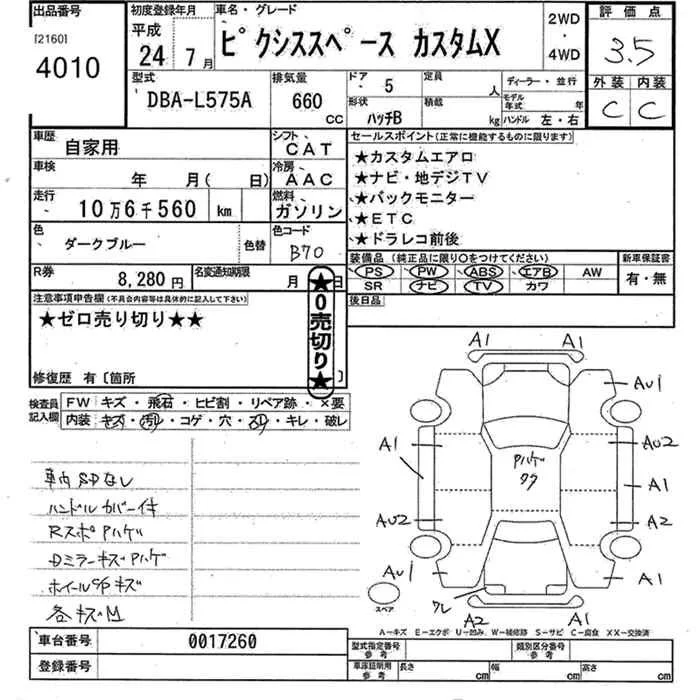 出品番号
[2160]
4010
初度登録年月
平成
24年 7月
車名・グレード
ピクシススペース カスタムX
2WD
・
4WD
評価点
3.5
外装 内装
C C
型式
DBA-L575A
排気量
660
CC
ドア
5
形状
ハッチB
定員
人
積載
kg
ディーラー・並行
モデル年式 年
ハンドル 左・右
車歴
自家用
シフト
CAT
車検
年 月( 日)
冷房
AAC
走行
10万6千560 km
燃料
ガソリン
色
ダークブルー
色替
色コード
B70
セールスポイント(正常に機能するものに限ります)
★カスタムエアロ
★ナビ・地デジTV
★バックモニター
★ETC
★ドラレコ前後
装備品 (純正品に限り○をつけてください)
PS PW ABS エアB AW
SR ナビ TV カワ
新車保証書
有・無
後日品
R券
8,280円
名変通知期限
月 日
★0売切り★
注意事項申告欄(不具合内容等は具体的に記入して下さい)
★ゼロ売り切り★★
修復歴 有〔箇所 〕
検査員記入欄
FW キズ・飛石・ヒビ割・リペア跡・×要
内装 キズ・汚レ・コゲ・穴・スレ・キレ・破レ
車内SDなし
ハンドルカバー付
RスポPハゲ
DミラーキズPハゲ
ホイールC/Pキズ
各キズM
A1 A1
AU1
A1
AU2
Pハゲ
ワク
A1
AU2
A2
AU1
A1
ワレ
A2 A1
スペア
A-キズ E-エクボ U-凹み W-補修跡 S-サビ C-腐食 XX-交換済
車台番号
0017260
登録番号
型式指定番号
参考
類別区分番号
参考
車庫証明用
参考
長さ cm
幅 cm
高さ cm